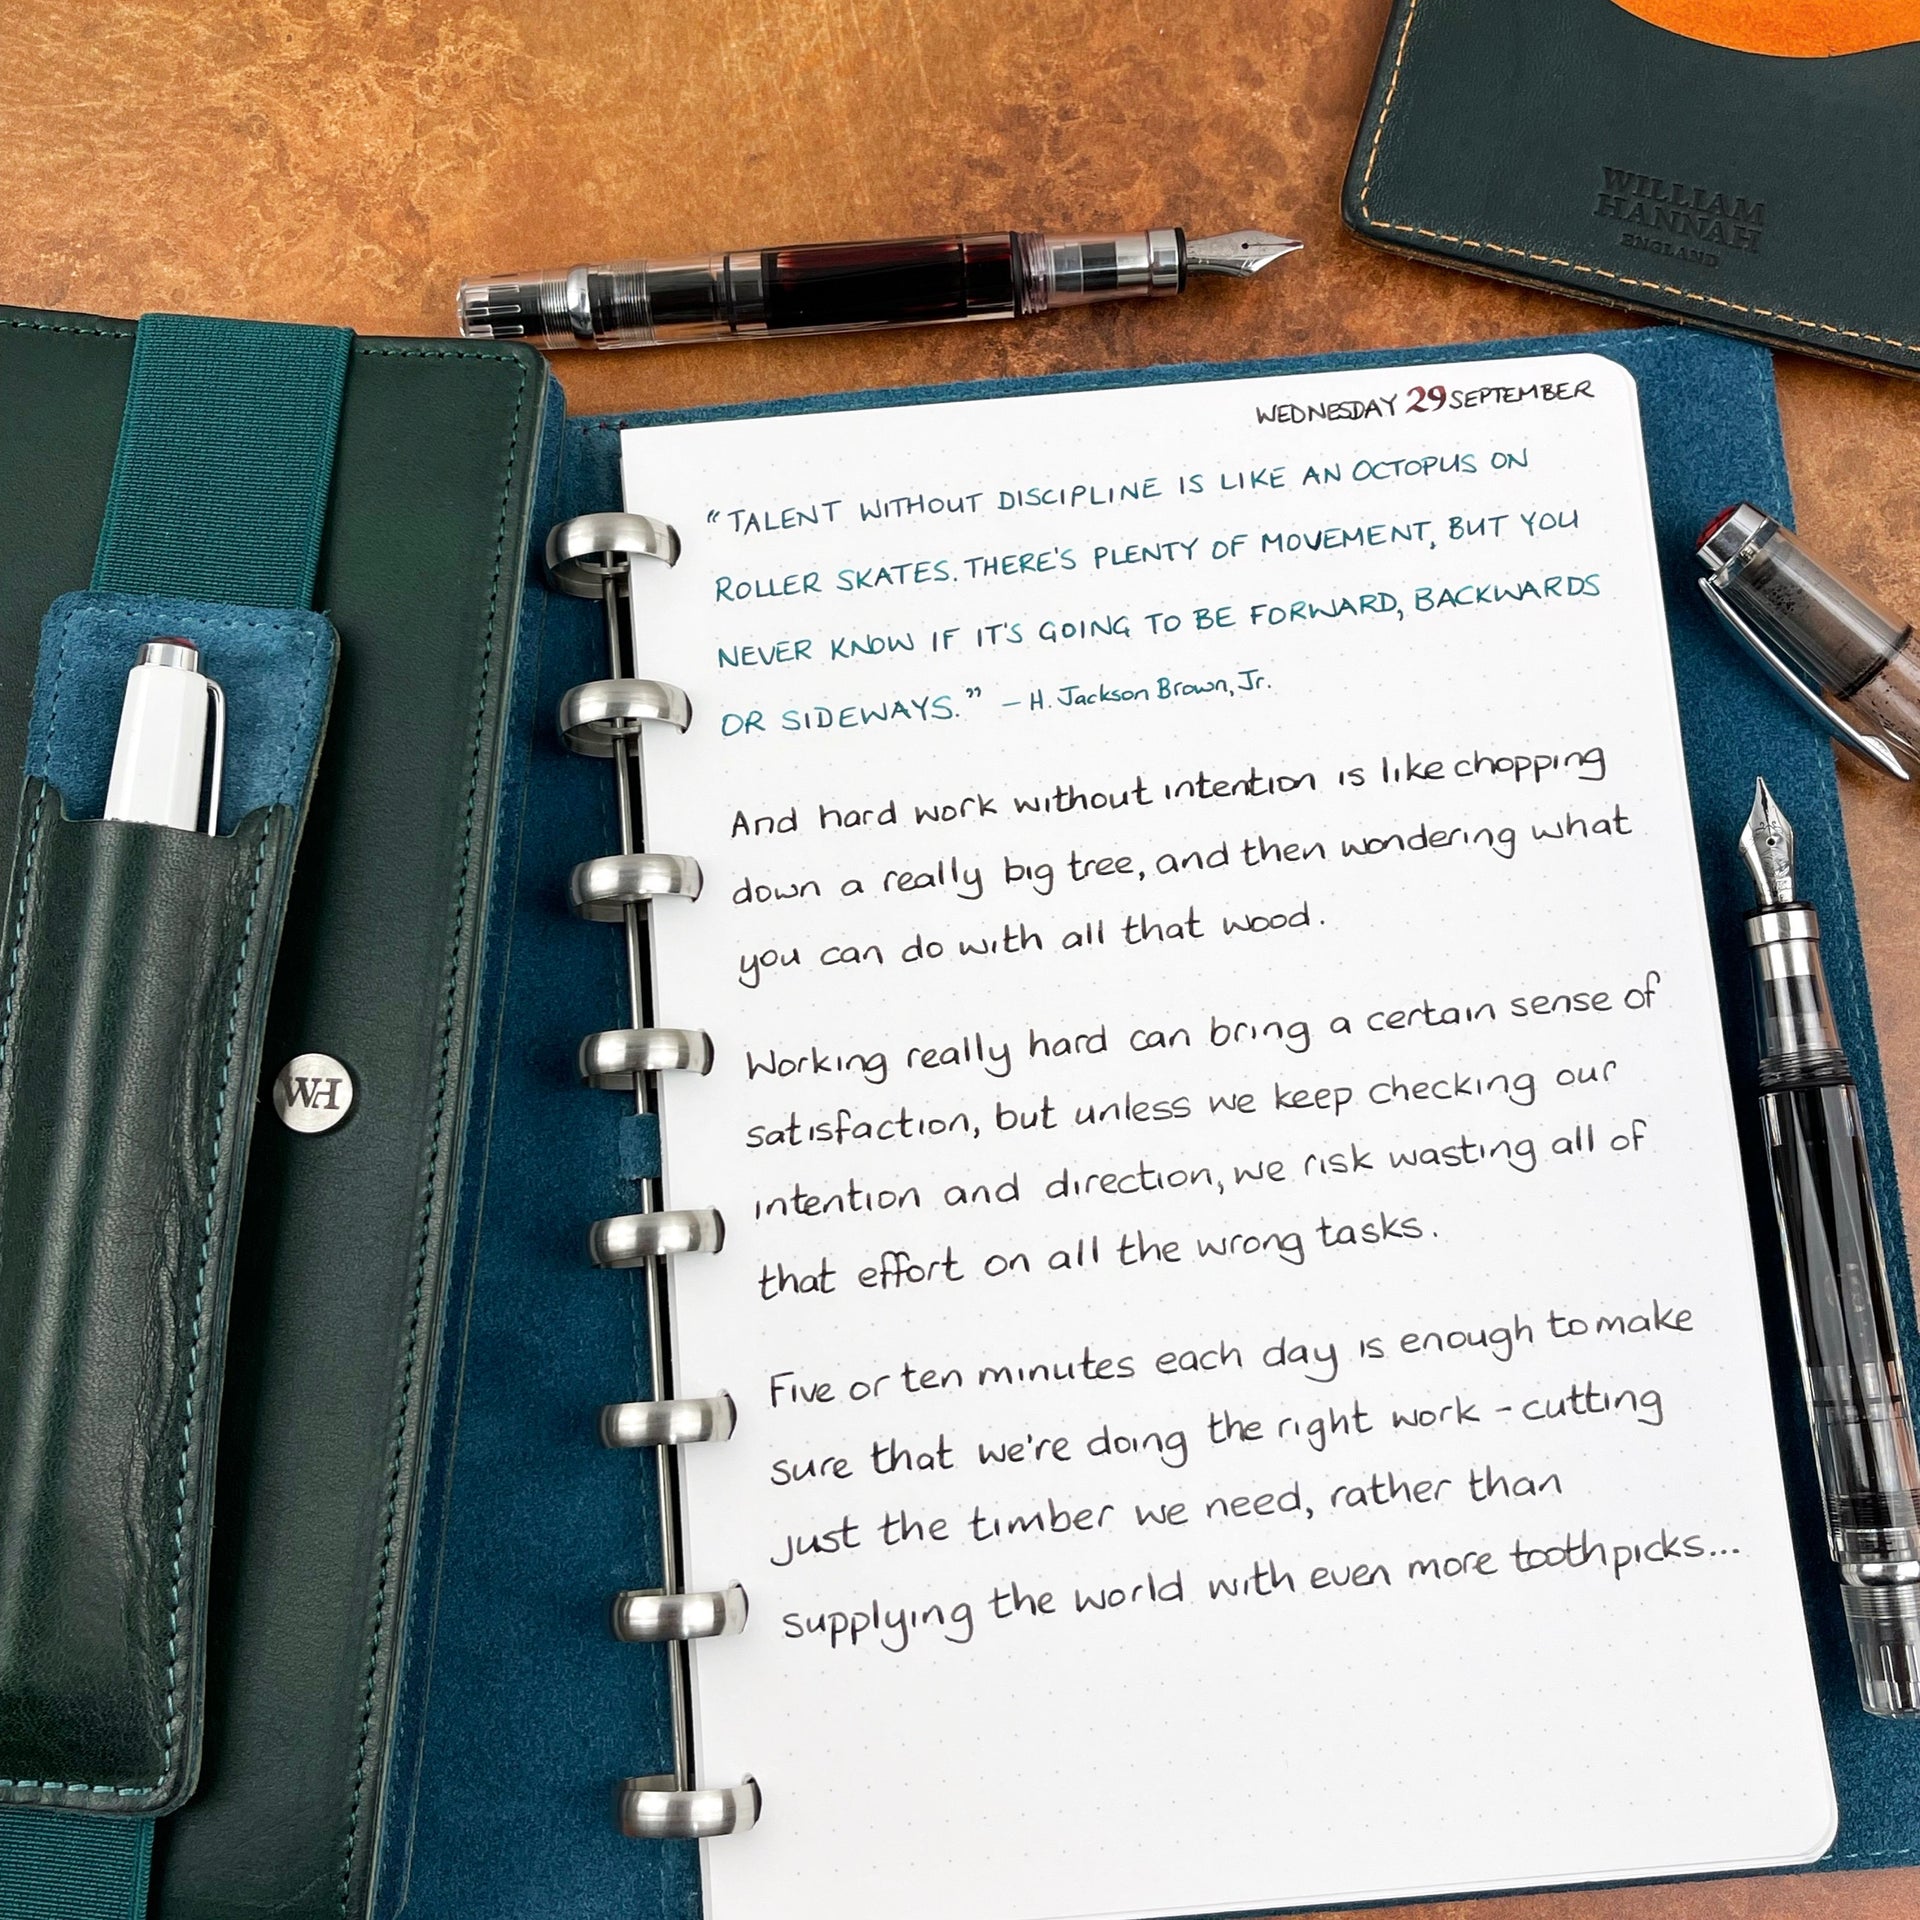 WILLIAM
HANNAH
ENGLAND
WEDNESDAY 29 SEPTEMBER
“TALENT WITHOUT DISCIPLINE IS LIKE AN OCTOPUS ON
ROLLER SKATES. THERE'S PLENTY OF MOVEMENT, BUT YOU
NEVER KNOW IF IT'S GOING TO BE FORWARD, BACKWARDS
OR SIDEWAYS.” – H. Jackson Brown, Jr.
And hard work without intention is like chopping
down a really big tree, and then wondering what
you can do with all that wood.
Working really hard can bring a certain sense of
satisfaction, but unless we keep checking our
intention and direction, we risk wasting all of
that effort on all the wrong tasks.
Five or ten minutes each day is enough to make
sure that we're doing the right work - cutting
just the timber we need, rather than
supplying the world with even more toothpicks...
WH